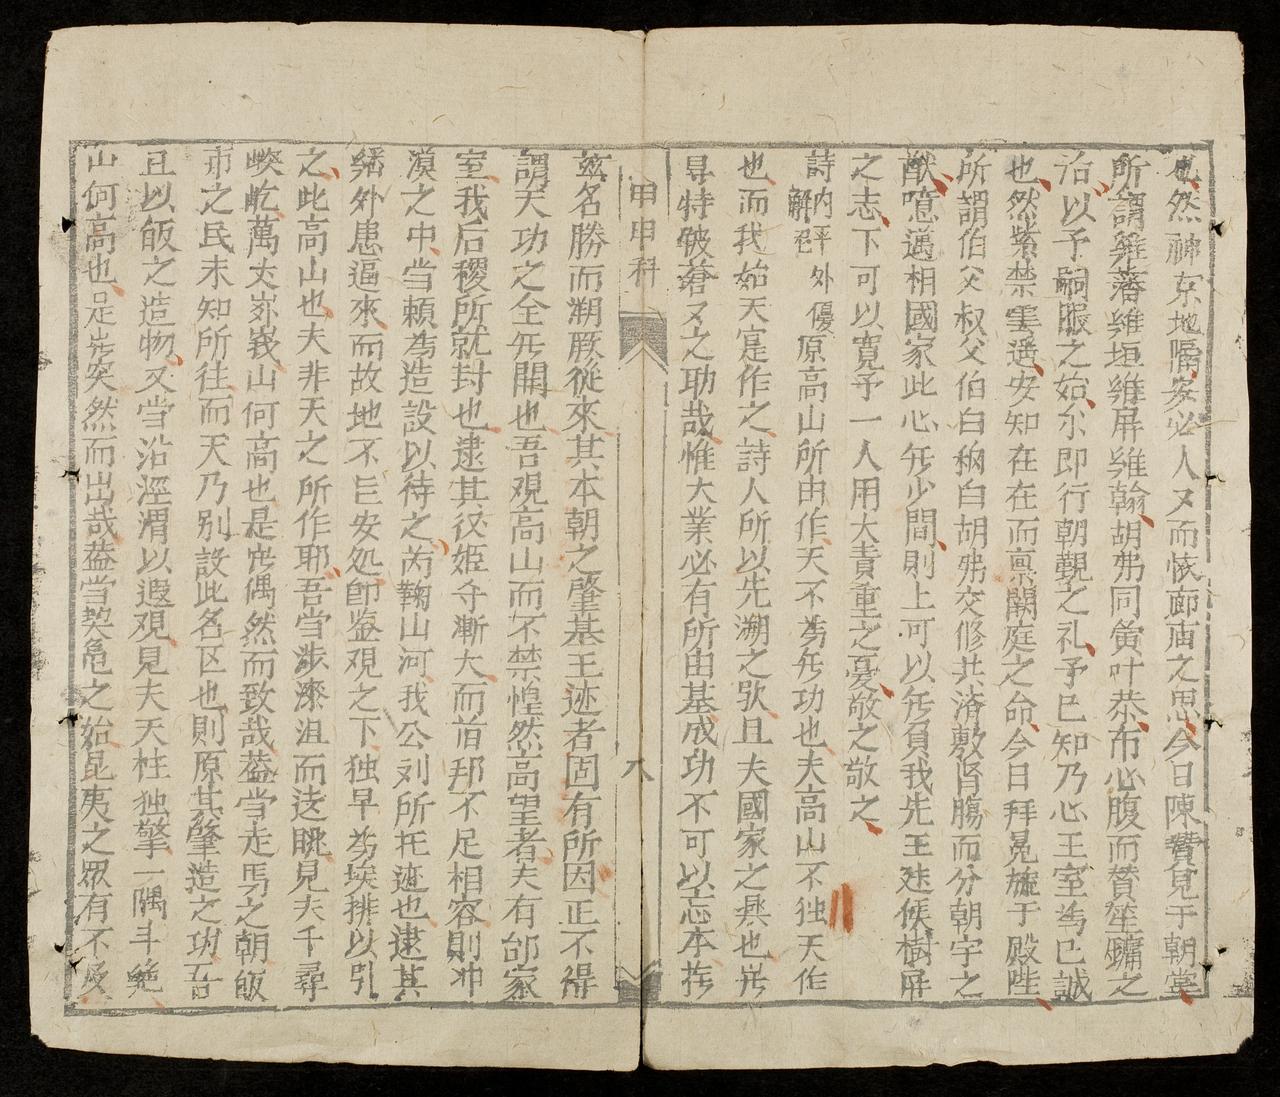 也然神京地隔安必人人而懷廊庙之思今日陳贄覓于朝堂
所謂雖藩雖垣雖屏雖翰胡弗同寅叶恭布心腹而賛笙鏞之
治以予嗣服之始尔即行朝覲之礼予已知乃心王室為已誠
也然紫禁雲遥安知在在而禀闕庭之命今日拜冕旒于殿陛
所謂伯父叔父伯白稱白胡弗交修共済敷肾腸而分朝宇之
猷噫邁相國家此心無少間則上可以無負我先王建侯樹屏
之志下可以寬予一人用大責重之憂敬之敬之
詩内平外優解元原高山所由作天不為無功也夫高山不独天作
也而我始天寔作之詩人所以先溯之欤且夫國家之興也無
尋特破蒼又之助哉惟大業必有所由基成功不可以忘本按
甲申科
八
兹名勝而溯厥從來其本朝之肇基王迹者固有所因正不得
謂天功之全無開也吾観高山而不禁惶然高望者夫有邰家
室我后稷所就封也逮其後姬守漸大而首邦不足相容則沖
漠之中當賴為造設以待之芮鞫山河我公刘所托迹也逮其
繙外患逼來而故地不足安処即鉴観之下独早為埃排以引
之此高山也夫非天之所作耶吾當涉漆沮而遠眺見夫千尋
峻屹萬丈嵾峩山何高也是無偶然而致哉葢當走馬之朝皈
市之民未知所往而天乃别設此名区也則原其肇造之功吾
且以皈之造物又當沿涇渭以遐观見夫天柱独擎一隅斗绝
山何高也是岂突然而出哉葢當契亀之始昆夷之眾有不及